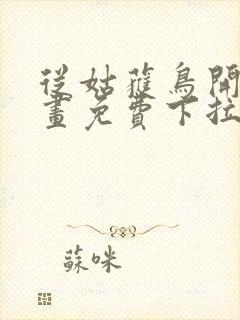 從姑獲鳥開
畫免費下拉
蘇咪